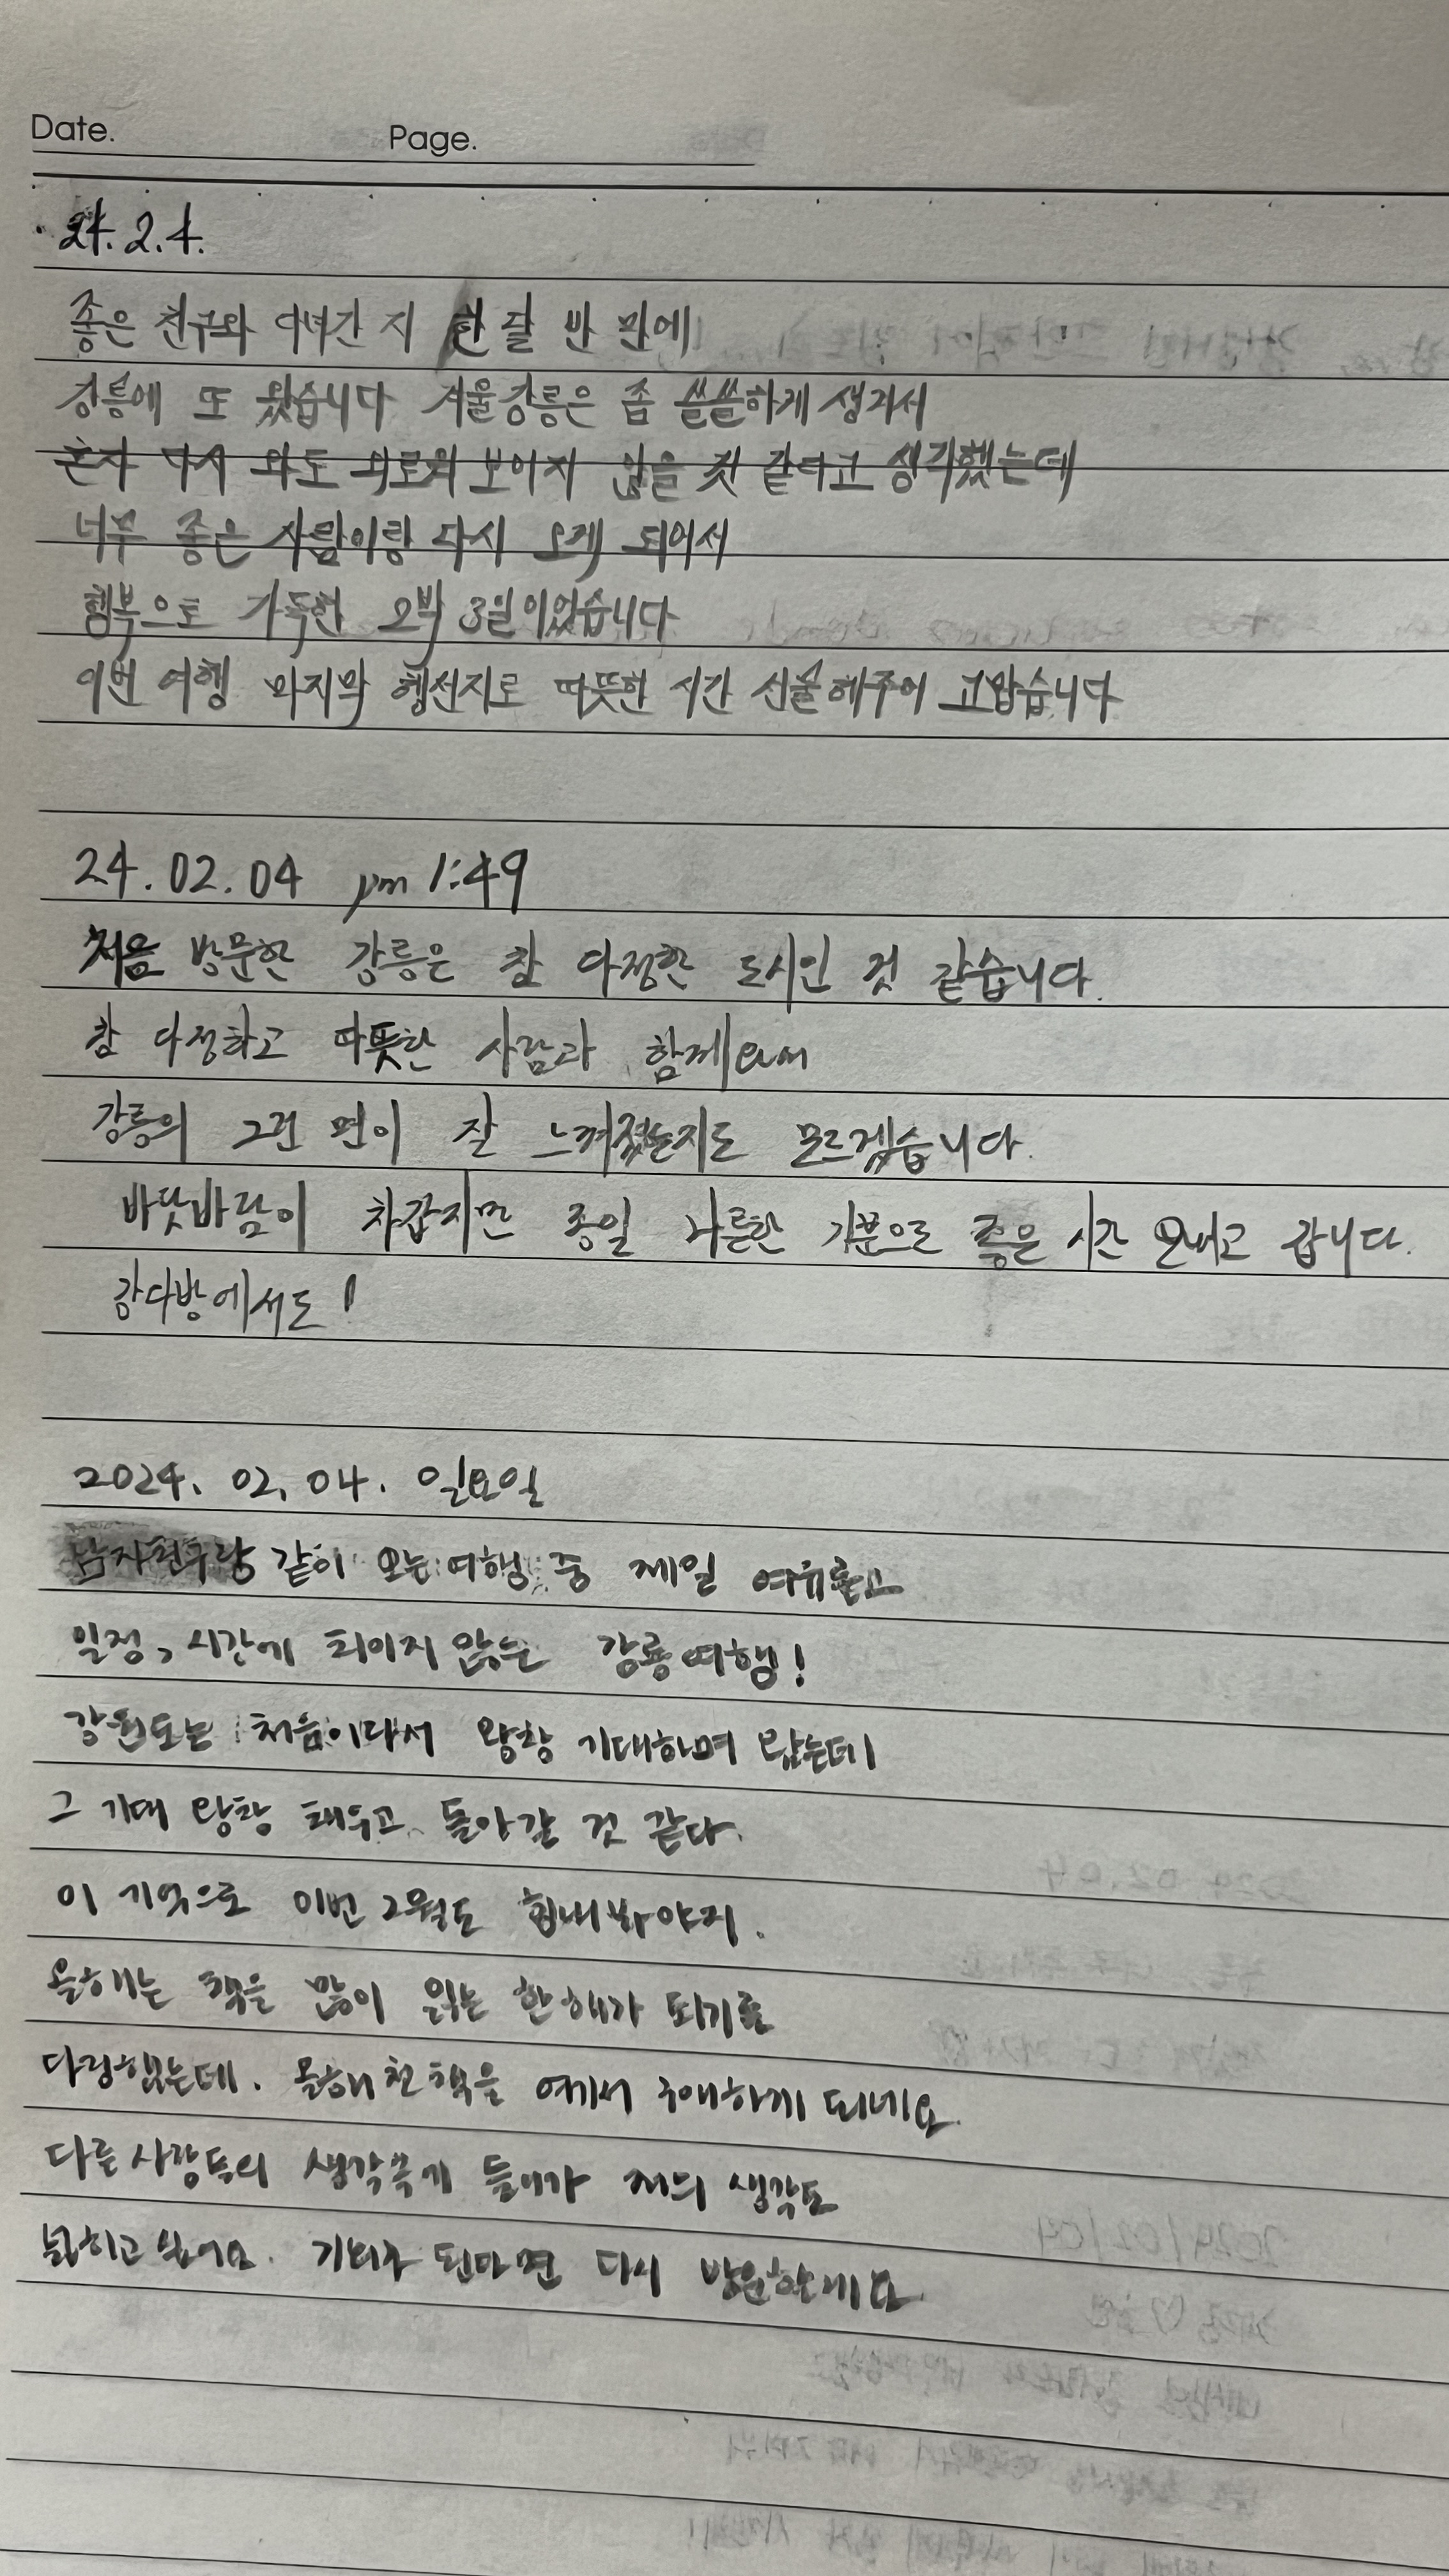 Date. Page.
24. 2. 4.
좋은 친구와 다녀간 지 한 달 반 만에
강릉에 또 왔습니다 겨울강릉은 좀 쓸쓸하게 생겨서
혼자 다시 와도 외로워 보이지 않을 것 같다고 생각했는데
너무 좋은 사람이랑 다시 오게 되어서
행복으로 가득한 2박 3일이었습니다
이번 여행 마지막 행선지로 따뜻한 시간 선물해주어 고맙습니다
24. 02. 04 pm 1:49
처음 방문한 강릉은 참 다정한 도시인 것 같습니다.
참 다정하고 따뜻한 사람과 함께와서
강릉의 그런 면이 잘 느껴졌는지도 모르겠습니다.
바닷바람이 차갑지만 종일 나른한 기분으로 좋은 시간 보내고 갑니다.
강다방에서도!
2024. 02. 04. 일요일
남자친구랑 같이 오는 여행 중 제일 여유롭고
일정, 시간에 쫓이지 않는 강릉여행!
강원도는 처음이다서 왕창 기대하며 왔는데
그 기대 왕창 채우고 돌아갈 것 같다.
이 기억으로 이번 2월도 힘내봐야지.
올해는 책을 많이 읽는 한해가 되기로
다짐했는데. 올해 첫 책을 여기서 구매하게 되네요.
다른 사람들의 생각속에 들어가 저의 생각도
넓히고 싶어요. 기회가 된다면 다시 방문할게요.